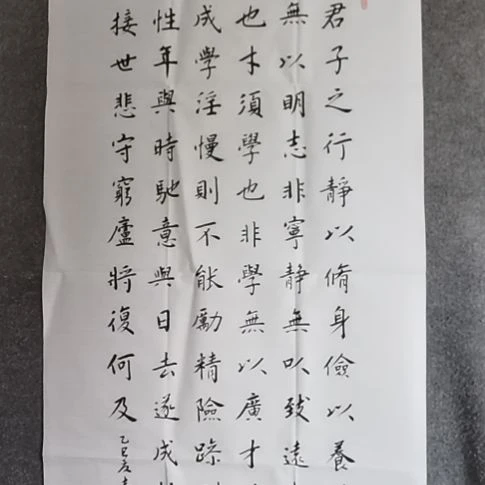 君子之行靜以脩身儉以養
無以明志非寧靜無以致遠
也才須學也非學無以廣才
成學淫慢則不能勵精險躁
性年與時馳意與日去遂成
接世悲守窮廬將復何及
乙巳